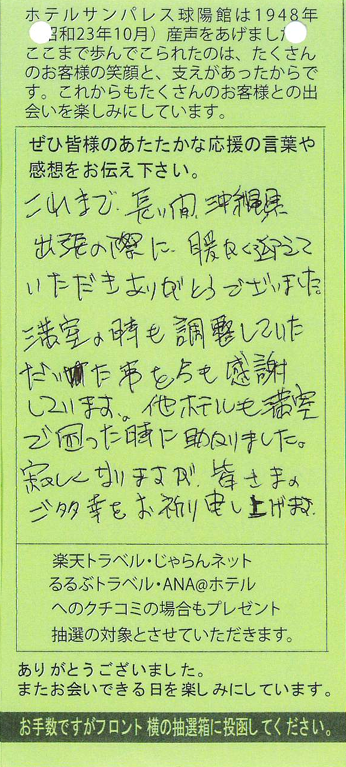 ホテルサンパレス球陽館は1948年
昭和23年10月）産声をあげまし
ここまで歩んでこられたのは、たくさん
のお客様の笑顔と、支えがあったからで
す。これからもたくさんのお客様との出
会いを楽しみにしています。
ぜひ皆様のあたたかな応援の言葉や
感想をお伝え下さい。
これまで、長い間、沖縄県
出張の際に、暖かく迎えて
いただきありがとうございました。
満室の時も調整していた
だいた事を今も感謝
しています。他ホテルも満室
で困った時に助かりました。
寂しくなりますが、皆さまの
ご多幸をお祈り申し上げます。
楽天トラベル・じゃらんネット
るるぶトラベル・ANA@ホテル
へのクチコミの場合もプレゼント
抽選の対象とさせていただきます。
ありがとうございました。
またお会いできる日を楽しみにしています。
お手数ですがフロント横の抽選箱に投函してください。